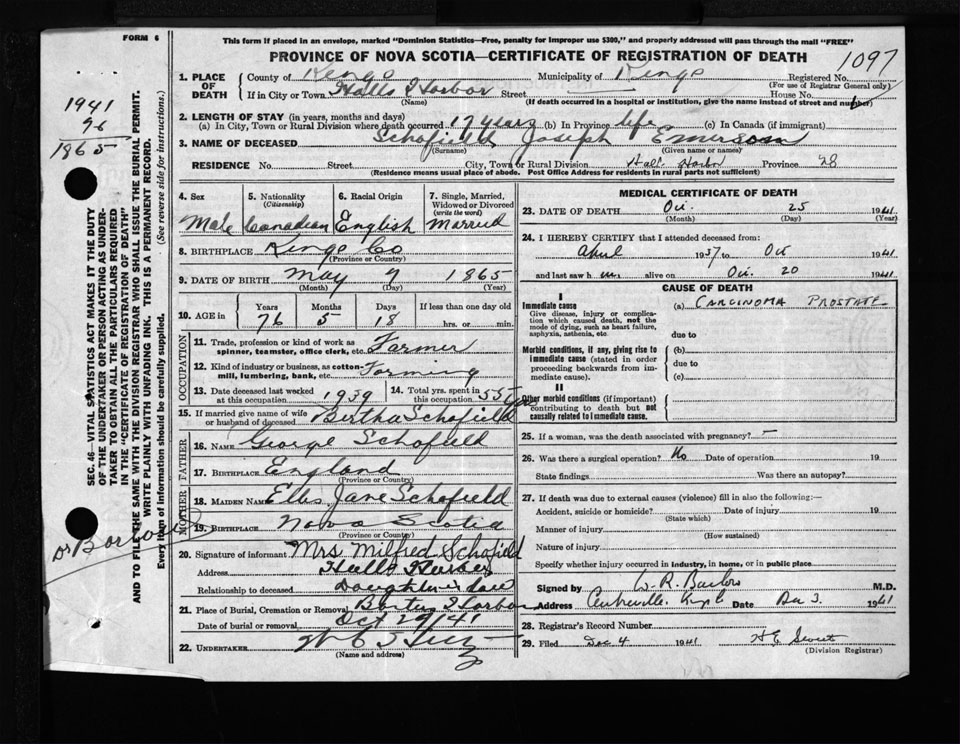 FORM 6
This form if placed in an envelope, marked "Dominion Statistics—Free, penalty for improper use $300," and properly addressed will pass through the mail "FREE"
PROVINCE OF NOVA SCOTIA—CERTIFICATE OF REGISTRATION OF DEATH
1097
1. PLACE OF DEATH County of Kings Municipality of Kings Registered No.
(For use of Registrar General only)
If in City or Town Halls Harbor Street House No.
(Name) (If death occurred in a hospital or institution, give the name instead of street and number)
2. LENGTH OF STAY (in years, months and days)
(a) In City, Town or Rural Division where death occurred 17 years (b) In Province life (c) In Canada (if immigrant)
3. NAME OF DECEASED Schofield Joseph Emerson
(Surname) (Given name or names)
RESIDENCE No. Street City, Town or Rural Division Halls Harbor Province NS
(Residence means usual place of abode. Post Office Address for residents in rural parts not sufficient)
4. Sex Male
5. Nationality (Citizenship) Canadian
6. Racial Origin English
7. Single, Married, Widowed or Divorced (write the word) Married
8. BIRTHPLACE Kings Co
(Province or Country)
9. DATE OF BIRTH May 7 1865
(Month) (Day) (Year)
10. AGE in Years 76 Months 5 Days 18 If less than one day old hrs. or min.
OCCUPATION
11. Trade, profession or kind of work as spinner, teamster, office clerk, etc. Farmer
12. Kind of industry or business, as cotton-mill, lumbering, bank, etc. Farming
13. Date deceased last worked at this occupation 1939
14. Total yrs. spent in this occupation 55 yrs
15. If married give name of wife or husband of deceased Bertha Schofield
FATHER
16. NAME George Schofield
17. BIRTHPLACE England
(Province or Country)
MOTHER
18. MAIDEN NAME Ells Jane Schofield
19. BIRTHPLACE Nova Scotia
(Province or Country)
20. Signature of informant Mrs Milfred Schofield
Address Halls Harbor
Relationship to deceased Daughter in law
21. Place of Burial, Cremation or Removal Harbor
Date of burial or removal Oct 29/41
22. UNDERTAKER
(Name and address)
MEDICAL CERTIFICATE OF DEATH
23. DATE OF DEATH Oct 25 1941
(Month) (Day) (Year)
24. I HEREBY CERTIFY that I attended deceased from:
April 1937 to Oct 1941
and last saw him alive on Oct. 20 1941
CAUSE OF DEATH
I
Immediate cause (a) CARCINOMA PROSTATE
Give disease, injury or complication which caused death, not the mode of dying, such as heart failure, asphyxia, asthenia, etc
due to
Morbid conditions, if any, giving rise to immediate cause (stated in order proceeding backwards from immediate cause).
(b)
due to
(c)
II
Other morbid conditions (if important) contributing to death but not causally related to immediate cause.
25. If a woman, was the death associated with pregnancy? —
26. Was there a surgical operation? No Date of operation 19
State findings Was there an autopsy?
27. If death was due to external causes (violence) fill in also the following:—
Accident, suicide or homicide? Date of injury 19
(State which)
Manner of injury
(How sustained)
Nature of injury
Specify whether injury occurred in industry, in home, or in public place
Signed by M.D.
Address Centreville Date Dec 3. 1941
28. Registrar's Record Number
29. Filed Dec 4 1941
(Division Registrar)
1941
76
1865
SEC. 46—VITAL STATISTICS ACT MAKES IT THE DUTY
OF THE UNDERTAKER OR PERSON ACTING AS UNDER-
TAKER TO OBTAIN ALL THE PARTICULARS REQUIRED
IN THE "CERTIFICATE OF REGISTRATION OF DEATH"
AND TO FILE THE SAME WITH THE DIVISION REGISTRAR WHO SHALL ISSUE THE BURIAL PERMIT.
WRITE PLAINLY WITH UNFADING INK. THIS IS A PERMANENT RECORD.
Every item of information should be carefully supplied. (See reverse side for instructions.)